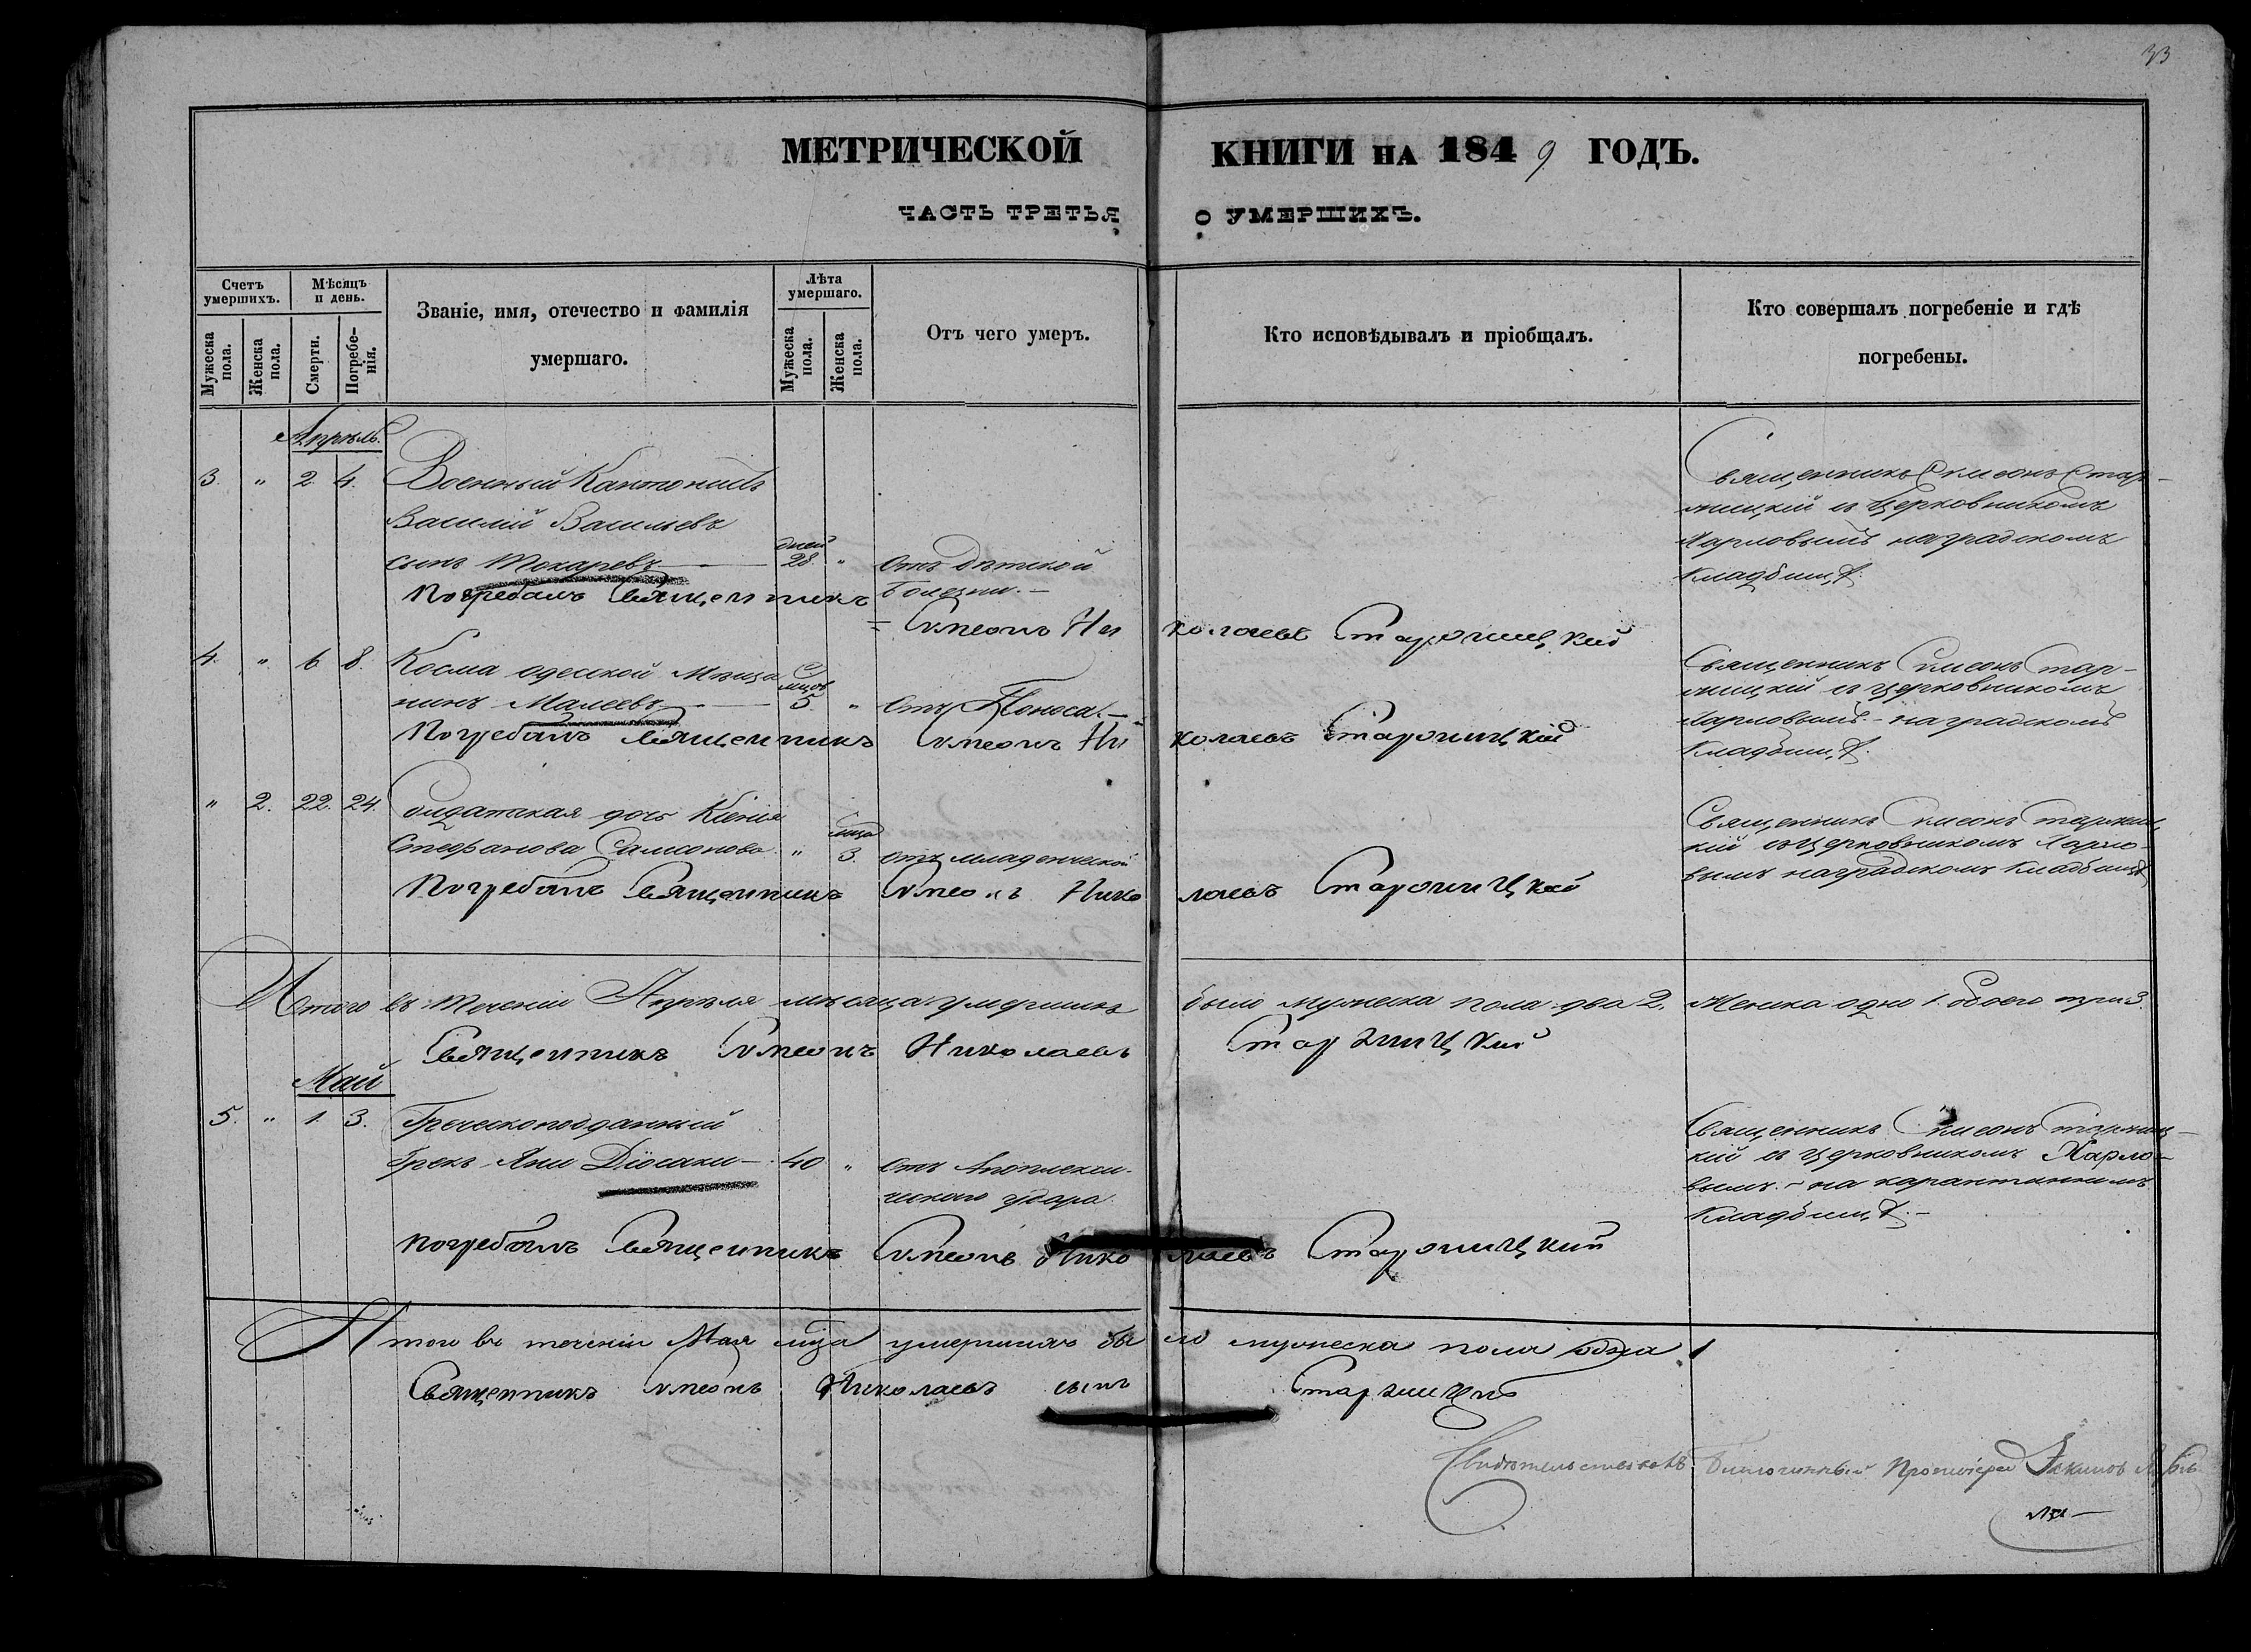 33
МЕТРИЧЕСКОЙ КНИГИ НА 1849 ГОДЪ.
ЧАСТЬ ТРЕТЬЯ О УМЕРШИХЪ.
Счетъ умершихъ.
Мужеска пола.
Женска пола.
Мѣсяцъ и день.
Смерти.
Погребенія.
Званіе, имя, отечество и фамилія
умершаго.
Лѣта умершаго.
Мужеска пола.
Женска пола.
Отъ чего умеръ.
Кто исповѣдывалъ и пріобщалъ.
Кто совершалъ погребеніе и гдѣ
погребены.
Апрѣль.
3. " 2. 4. Военный Кантонистъ
Василій Васильевъ
сынъ Токаревъ дней 28. " отъ дѣтской
болезни.
Священникъ Симеонъ Стар-
ницкій съ Церковникомъ
Харловымъ на градскомъ
кладбищѣ.
Погребалъ Священникъ Симеонъ Николаевъ Старницкій
4. " 6. 8. Косма одесской Мѣща
нинъ Малеевъ 5. " отъ Поноса.
Священникъ Симеонъ Стар-
ницкій съ церковникомъ
Харловымъ - на градскомъ
кладбищѣ.
Погребалъ Священникъ Симеонъ Николаевъ Старницкій
" 2. 22. 24. Солдатская дочь Ксенія
Стефанова Самсонова " 3. отъ младенческой
Священникъ Симеонъ Старниц
кій съ Церковникомъ Харло-
вымъ на градскомъ кладбищѣ
Погребалъ Священникъ Симеонъ Николаевъ Старницкій
Итого въ теченіи Апрѣля мѣсяца умершихъ было мужеска пола два 2. Женска одно 1. обоего три 3.
Священникъ Симеонъ Николаевъ Старницкій
Май
5. " 1. 3. Греческоподданный
Грекъ Яни Діосаки 40 " отъ Апоплекси-
ческаго удара.
Священникъ Симеонъ Старниц-
кій съ Церковникомъ Харло-
вымъ - на карантинномъ
кладбищѣ.
Погребалъ Священникъ Симеонъ Николаевъ Старницкій
Итого въ теченіи Мая мца умершихъ было мужеска пола одна 1
Священникъ Симеонъ Николаевъ сынъ Старницкій
Свидетельствовалъ Благочинный Протоіерей